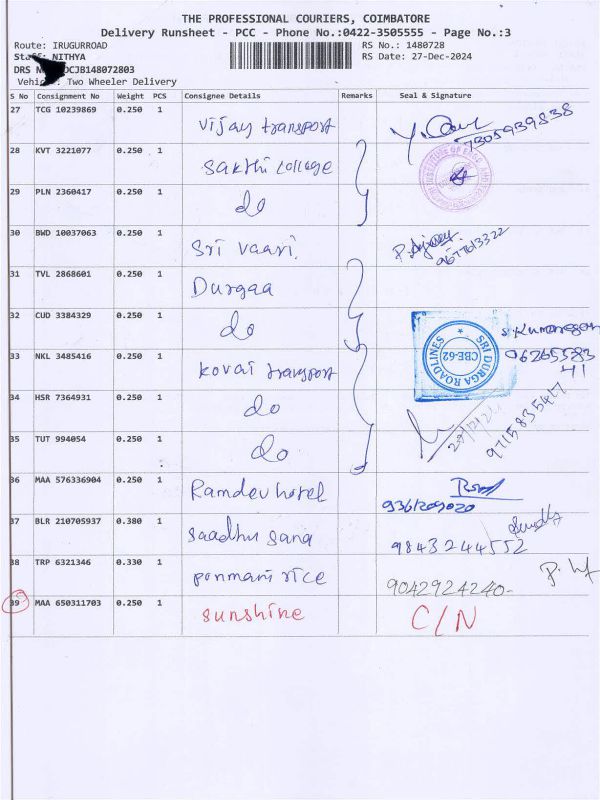 THE PROFESSIONAL COURIERS, COIMBATORE
Delivery Runsheet - PCC - Phone No.:0422-3505555 - Page No.:3
Route: IRUGURROAD
RS No.: 1480728
NITHYA
RS Date: 27-Dec-2024
DRS
DCJB148072803
Two Wheeler Delivery
S No Consignment No Weight PCS Consignee Details Remarks Seal & Signature
27 TCG 10239869 0.250 1 Vijay transport 7305939838
28 KVT 3221077 0.250 1 Sakthi College
29 PLN 2360417 0.250 1 do
30 BWD 10037063 0.250 1 Sri Vaari
31 TVL 2868601 0.250 1 Durgaa
32 CUD 3384329 0.250 1 do
SRI DURGA ROADLINES
CBE-62
33 NKL 3485416 0.250 1 Kovai transport
34 HSR 7364931 0.250 1 do 9715835417
35 TUT 994054 0.250 1 do
36 MAA 576336904 0.250 1 Ramdev hotel 9361209020
37 BLR 210705937 0.380 1 Saadhu sana 9843244552
38 TRP 6321346 0.330 1 ponmani rice 9042924240-
39 MAA 650311703 0.250 1 sunshine C/N